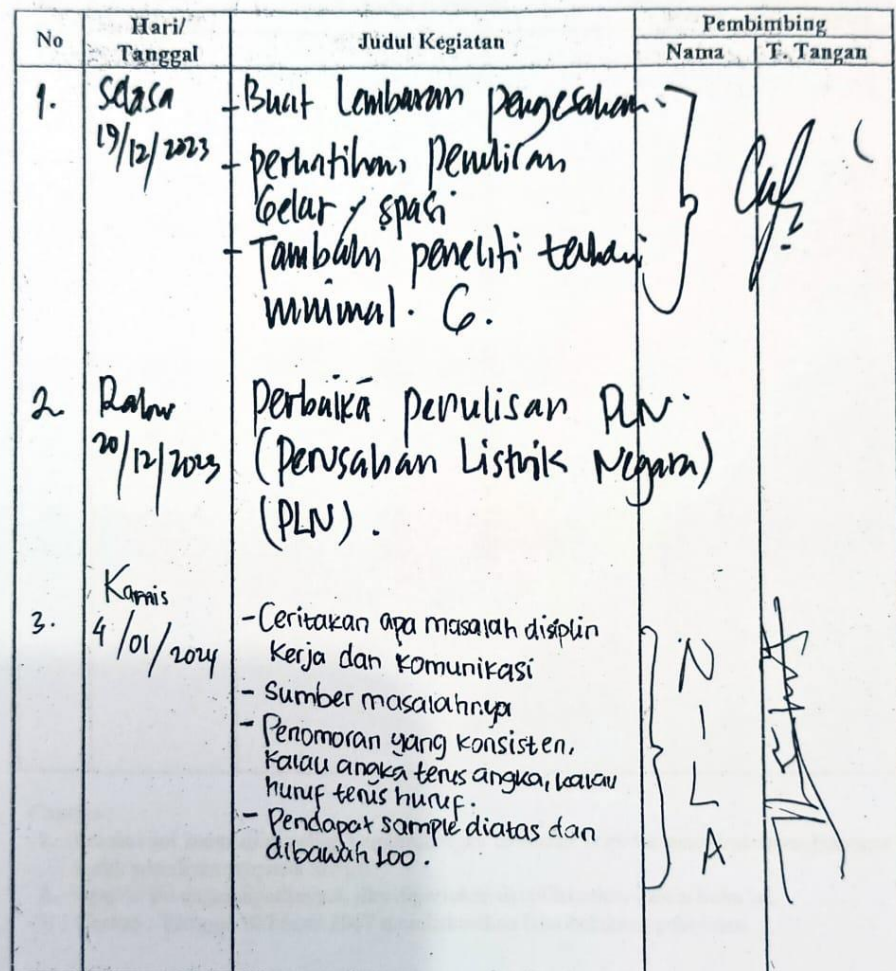 No Hari/ Tanggal Judul Kegiatan Pembimbing
Nama T. Tangan
1. Selasa 19/12/2023
- Buat Lembaran pengesahan.
- perhatikan penulisan
Gelar / spasi
- Tambahn peneliti
minimal. 6.
2. Rabu 20/12/2023
Perbaika penulisan PLN.
(Perusahan Listrik Negara)
(PLN).
3. Kamis 4/01/2024
- Ceritakan apa masalah disiplin
kerja dan komunikasi
- Sumber masalahnya
- Penomoran yang konsisten,
kalau angka terus angka, kalau
huruf terus huruf.
- Pendapat sample diatas dan
dibawah 100.
NILA